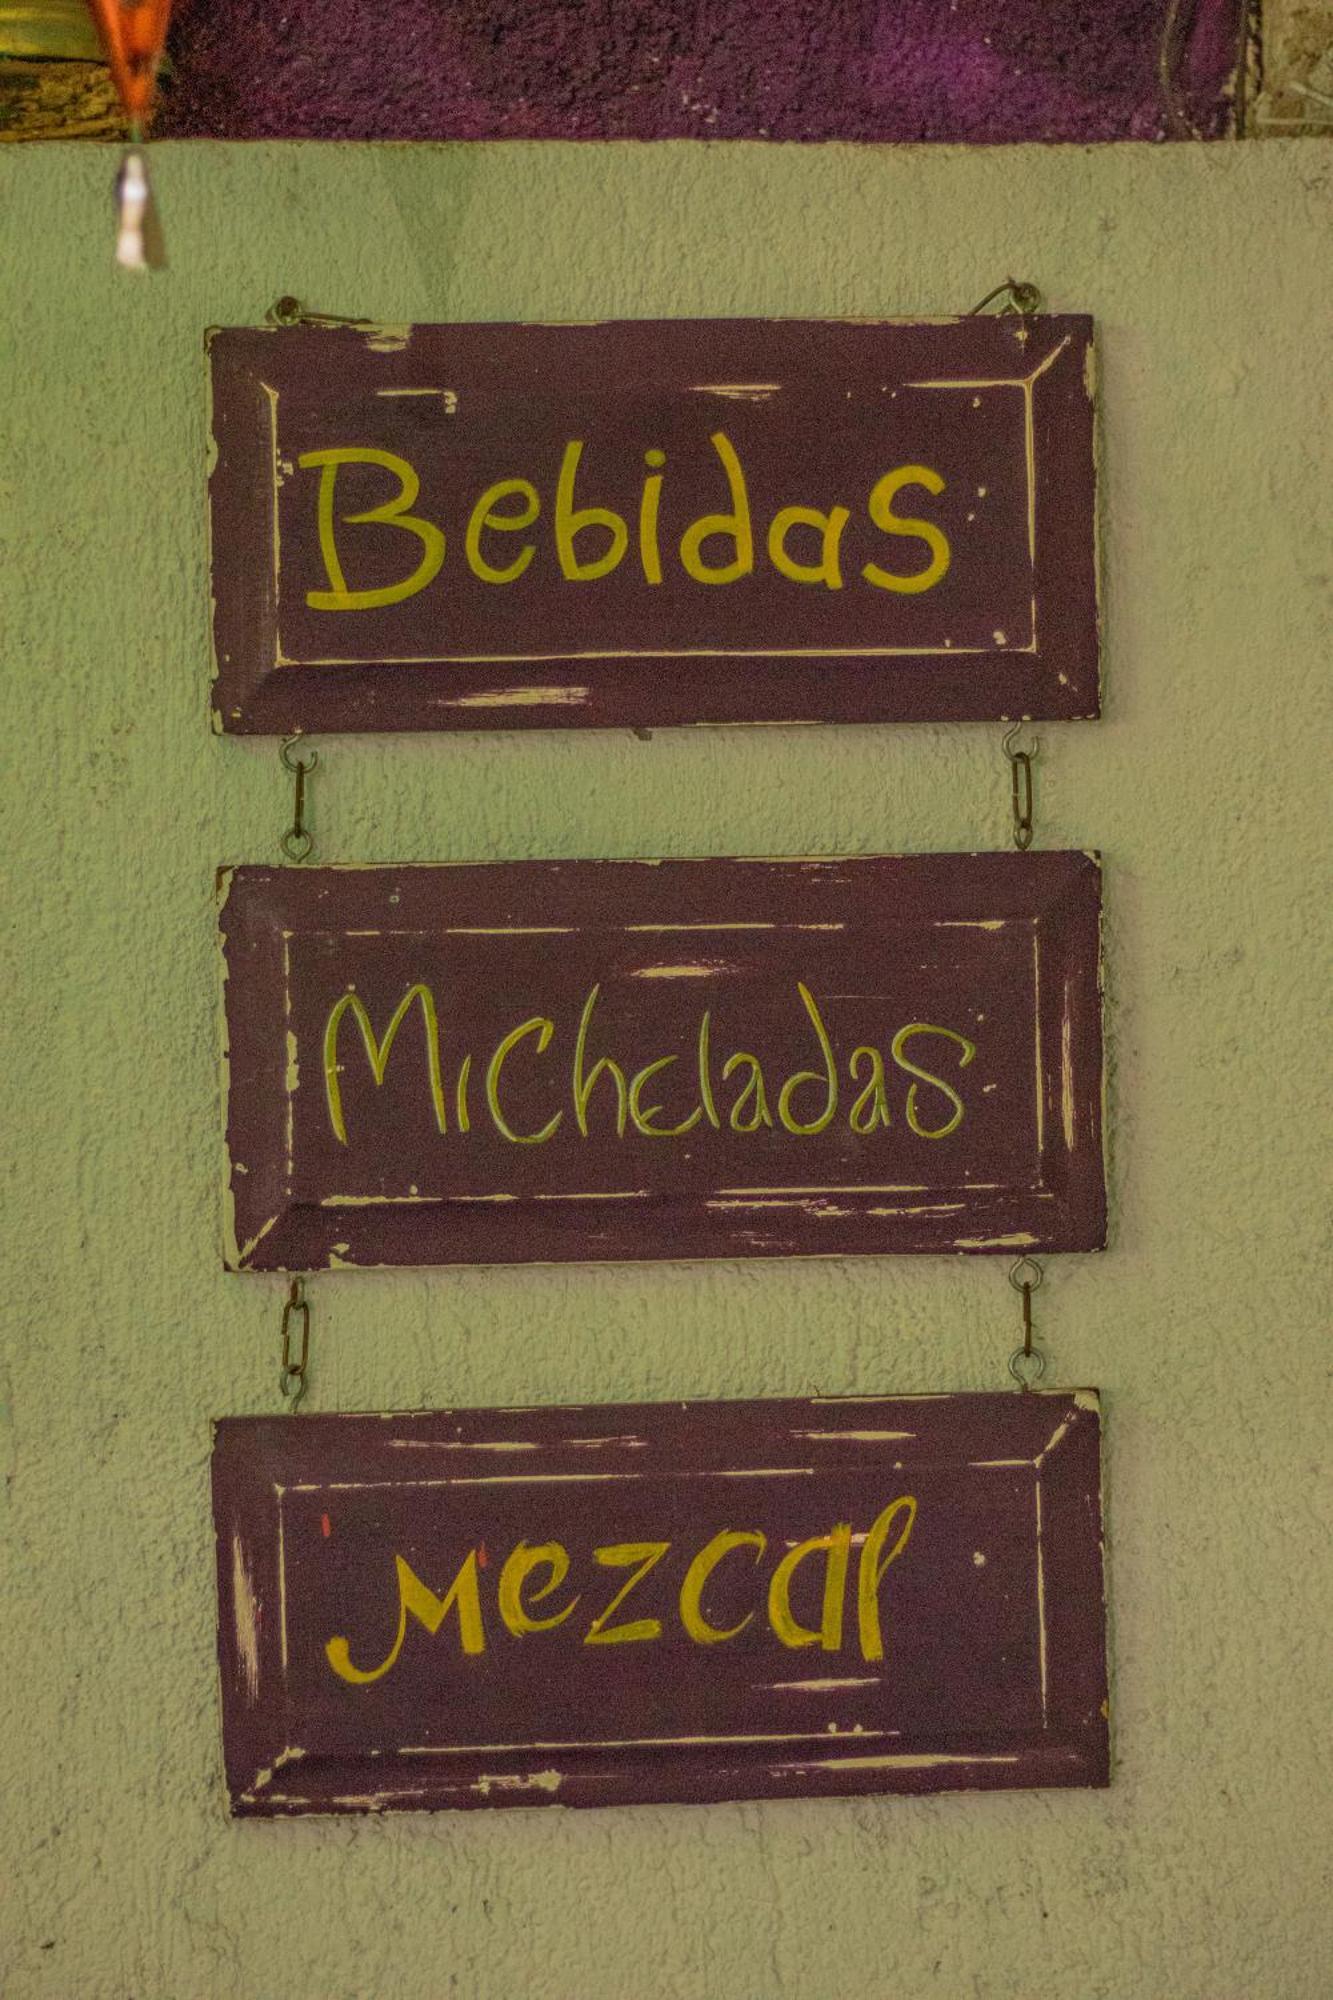 Bebidas
Micheladas
Mezcal